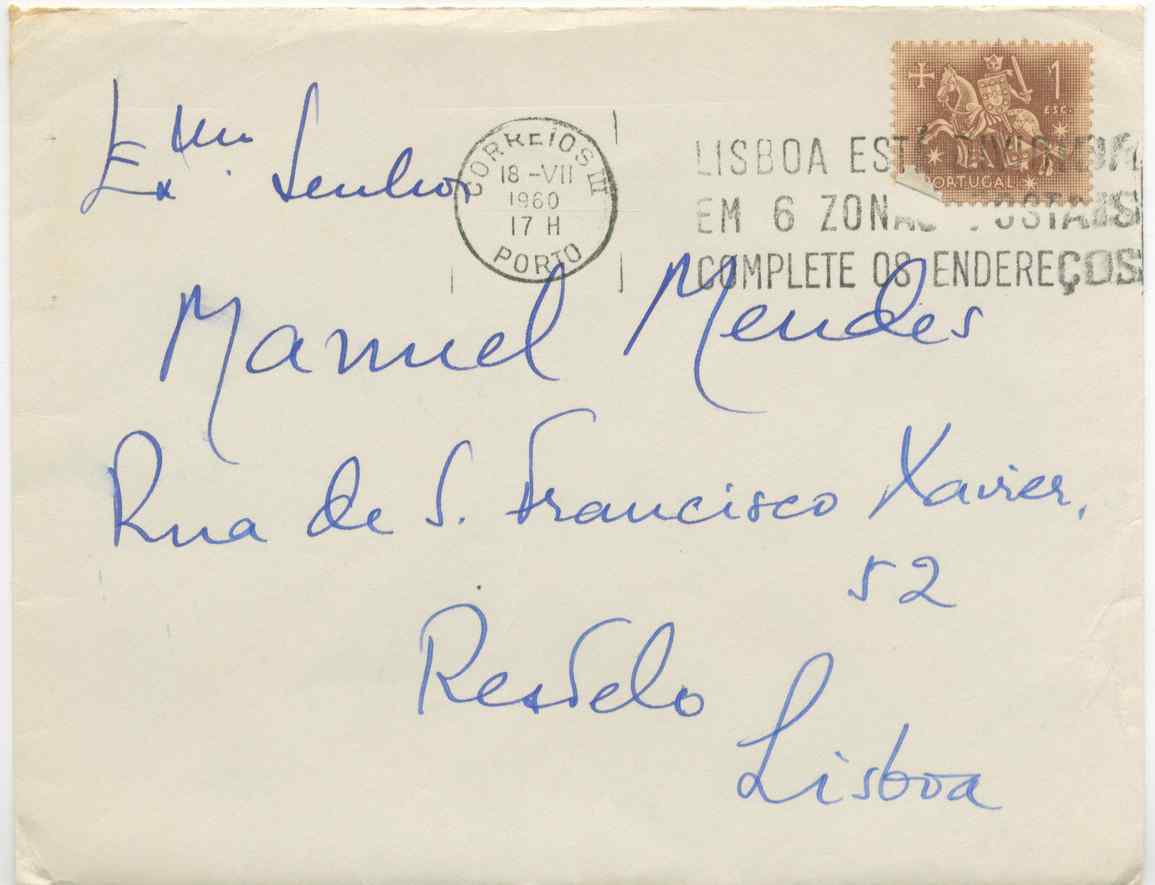 Exmo. Senhor
CORREIOS III
18-VII
1960
17 H
PORTO
1
ESC.
PORTUGAL
LISBOA EST
EM 6 ZONAS POSTAIS
COMPLETE OS ENDEREÇOS
Manuel Mendes
Rua de S. Francisco Xavier,
52
Restelo
Lisboa